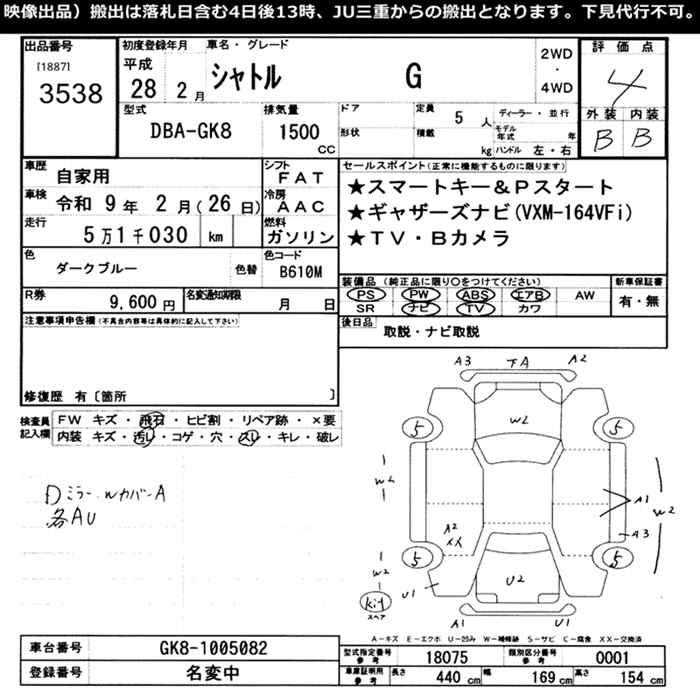 映像出品）搬出は落札日含む4日後13時、JU三重からの搬出となります。下見代行不可。
出品番号
[1887]
3538
初度登録年月
平成
28 2月
車名・グレード
シャトル G
2WD
・
4WD
評価点
4
外装 内装
B B
型式
DBA-GK8
排気量
1500
CC
ドア
形状
定員 5 人
積載 kg
ディーラー・並行
モデル年式 年
ハンドル 左・右
車歴
自家用
シフト
FAT
車検
令和 9年 2月(26日)
冷房
AAC
走行
5万1千030 km
燃料
ガソリン
セールスポイント(正常に機能するものに限ります)
★スマートキー＆Pスタート
★ギャザーズナビ(VXM-164VFi)
★TV・Bカメラ
色
ダークブルー
色替
色コード
B610M
R券
9,600円
名変通知期限
月 日
装備品（純正品に限り○をつけてください）
PS PW ABS エアB AW
SR ナビ TV カワ
新車保証書
有・無
後日品
取説・ナビ取説
注意事項申告欄(不具合内容等は具体的に記入して下さい)
修復歴 有〔箇所 〕
検査員記入欄
FW キズ・飛石・ヒビ割・リペア跡・×要
内装 キズ・汚レ・コゲ・穴・スレ・キレ・破レ
Dミラー Wカバー A
各AU
A3 下A A2
W2
5 5
W2
A1
W2
A2
XX
A3
5 5
W2
U2
U1
kit
スペア
A1 U1
A－キズ E－エクボ U－凹み W－補修跡 S－サビ C－腐食 XX－交換済
車台番号
GK8-1005082
登録番号
名変中
型式指定番号
参考
18075
類別区分番号
参考
0001
車庫証明用
参考
長さ 440 cm
幅 169 cm
高さ 154 cm